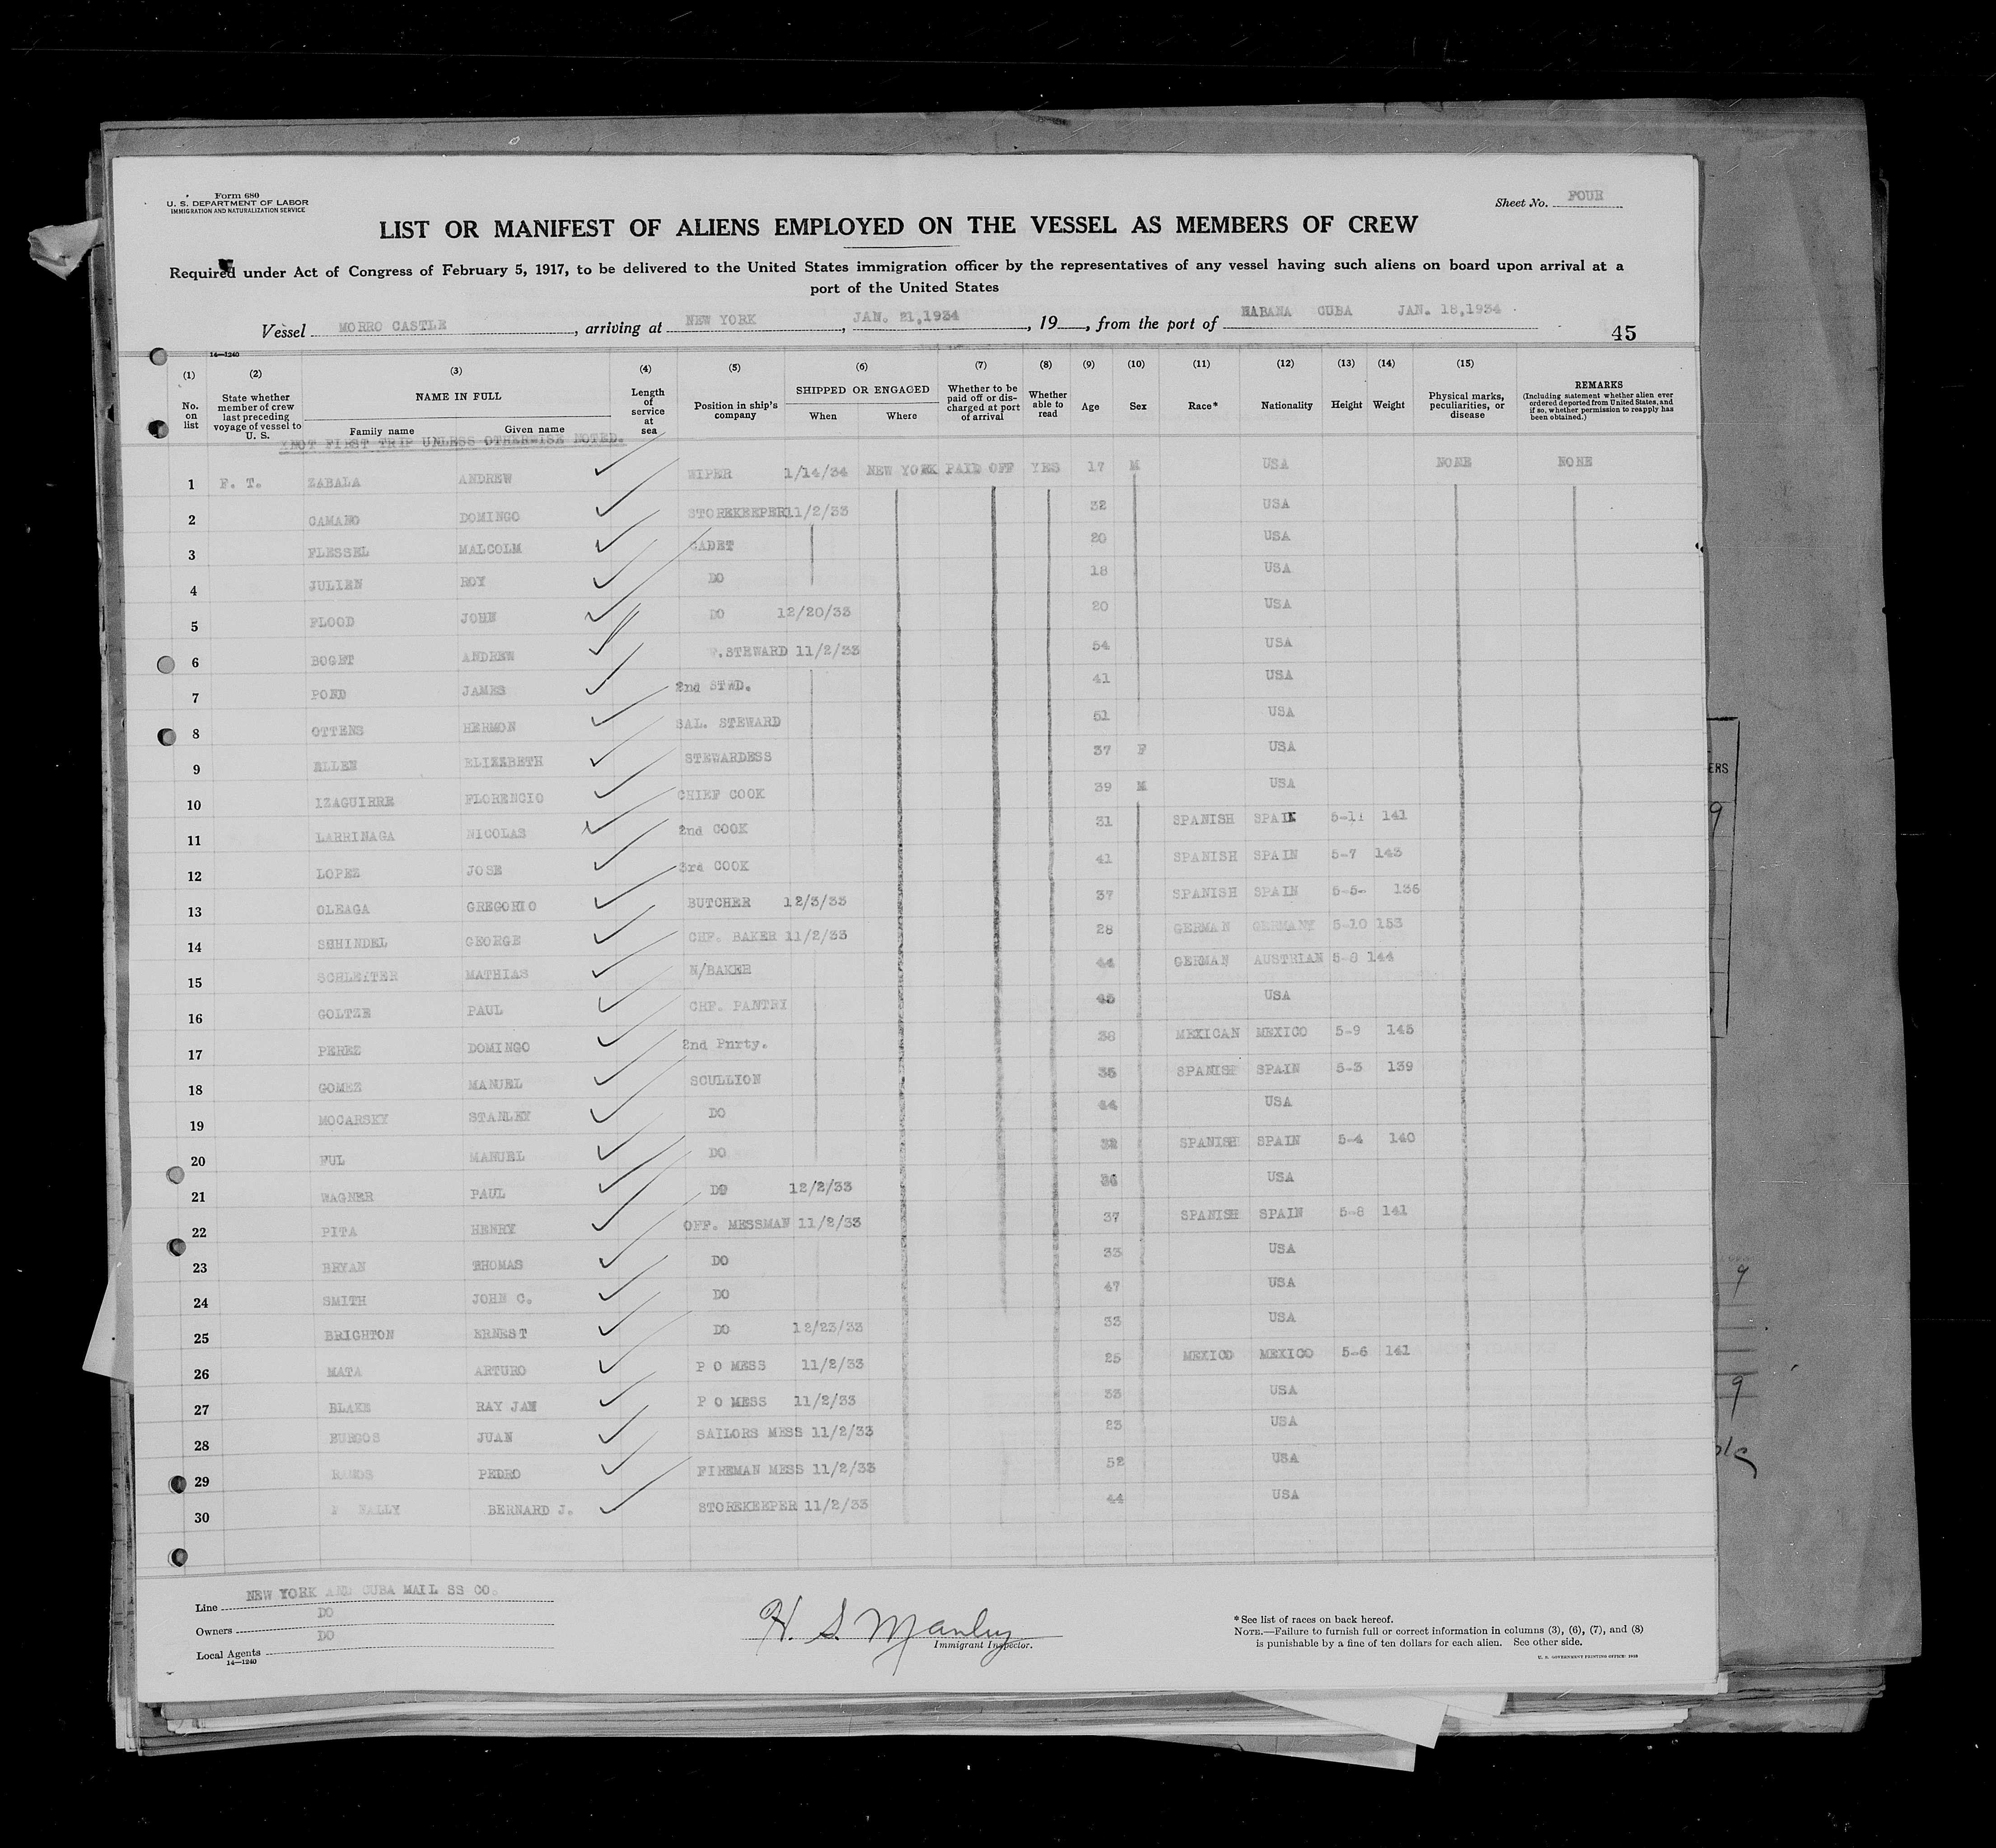 Form 680
U. S. DEPARTMENT OF LABOR
IMMIGRATION AND NATURALIZATION SERVICE
Sheet No. FOUR
LIST OR MANIFEST OF ALIENS EMPLOYED ON THE VESSEL AS MEMBERS OF CREW
Required under Act of Congress of February 5, 1917, to be delivered to the United States immigration officer by the representatives of any vessel having such aliens on board upon arrival at a
port of the United States
Vessel MORRO CASTLE, arriving at NEW YORK, JAN. 21,1934, 19, from the port of HABANA CUBA JAN. 18,1934
45
14—1240
(1) (2) (3) (4) (5) (6) (7) (8) (9) (10) (11) (12) (13) (14) (15)
No. on list
State whether member of crew last preceding voyage of vessel to U. S.
NAME IN FULL
Family name Given name
Length of service at sea
Position in ship's company
SHIPPED OR ENGAGED
When Where
Whether to be paid off or discharged at port of arrival
Whether able to read
Age
Sex
Race*
Nationality
Height
Weight
Physical marks, peculiarities, or disease
REMARKS
(Including statement whether alien ever ordered deported from United States, and if so, whether permission to reapply has been obtained.)
NOT FIRST TRIP UNLESS OTHERWISE NOTED.
1 F. T. ZABALA ANDREW WIPER 1/14/34 NEW YORK PAID OFF YES 17 M USA NONE NONE
2 CAMANO DOMINGO STOREKEEPER 11/2/33 32 USA
3 FLESSEL MALCOLM CADET 20 USA
4 JULIEN ROY DO 18 USA
5 FLOOD JOHN DO 12/20/33 20 USA
6 BOGET ANDREW .STEWARD 11/2/33 54 USA
7 POND JAMES 2nd STWD. 41 USA
8 OTTENS HERMON SAL. STEWARD 51 USA
9 ALLEN ELIZABETH STEWARDESS 37 F USA
10 IZAGUIRRE FLORENCIO CHIEF COOK 39 M USA
11 LARRINAGA NICOLAS 2nd COOK 31 SPANISH SPAIN 5-11 141
12 LOPEZ JOSE 3rd COOK 41 SPANISH SPAIN 5-7 143
13 OLEAGA GREGORIO BUTCHER 12/3/33 37 SPANISH SPAIN 5-5- 136
14 SCHINDEL GEORGE CHF. BAKER 11/2/33 28 GERMAN GERMANY 5-10 153
15 SCHLEITER MATHIAS N/BAKER 44 GERMAN AUSTRIAN 5-8 144
16 GOLTZE PAUL CHF. PANTRY 45 USA
17 PEREZ DOMINGO 2nd Pnrty. 38 MEXICAN MEXICO 5-9 145
18 GOMEZ MANUEL SCULLION 35 SPANISH SPAIN 5-3 139
19 MOCARSKY STANLEY DO 44 USA
20 FUL MANUEL DO 32 SPANISH SPAIN 5-4 140
21 WAGNER PAUL DO 12/2/33 36 USA
22 PITA HENRY OFF. MESSMAN 11/2/33 37 SPANISH SPAIN 5-8 141
23 BRYAN THOMAS DO 33 USA
24 SMITH JOHN C. DO 47 USA
25 BRIGHTON ERNEST DO 12/23/33 33 USA
26 MATA ARTURO P O MESS 11/2/33 25 MEXICO MEXICO 5-6 141
27 BLAKE RAY JAN P O MESS 11/2/33 33 USA
28 BURGOS JUAN SAILORS MESS 11/2/33 23 USA
29 RAMOS PEDRO FIREMAN MESS 11/2/33 52 USA
30 NALLY BERNARD J. STOREKEEPER 11/2/33 44 USA
Line NEW YORK AND CUBA MAIL SS CO.
Owners DO
Local Agents DO
14—1240
H. S. Manley
Immigrant Inspector.
*See list of races on back hereof.
NOTE.—Failure to furnish full or correct information in columns (3), (6), (7), and (8)
is punishable by a fine of ten dollars for each alien. See other side.
U. S. GOVERNMENT PRINTING OFFICE:
ERS
9
9
9